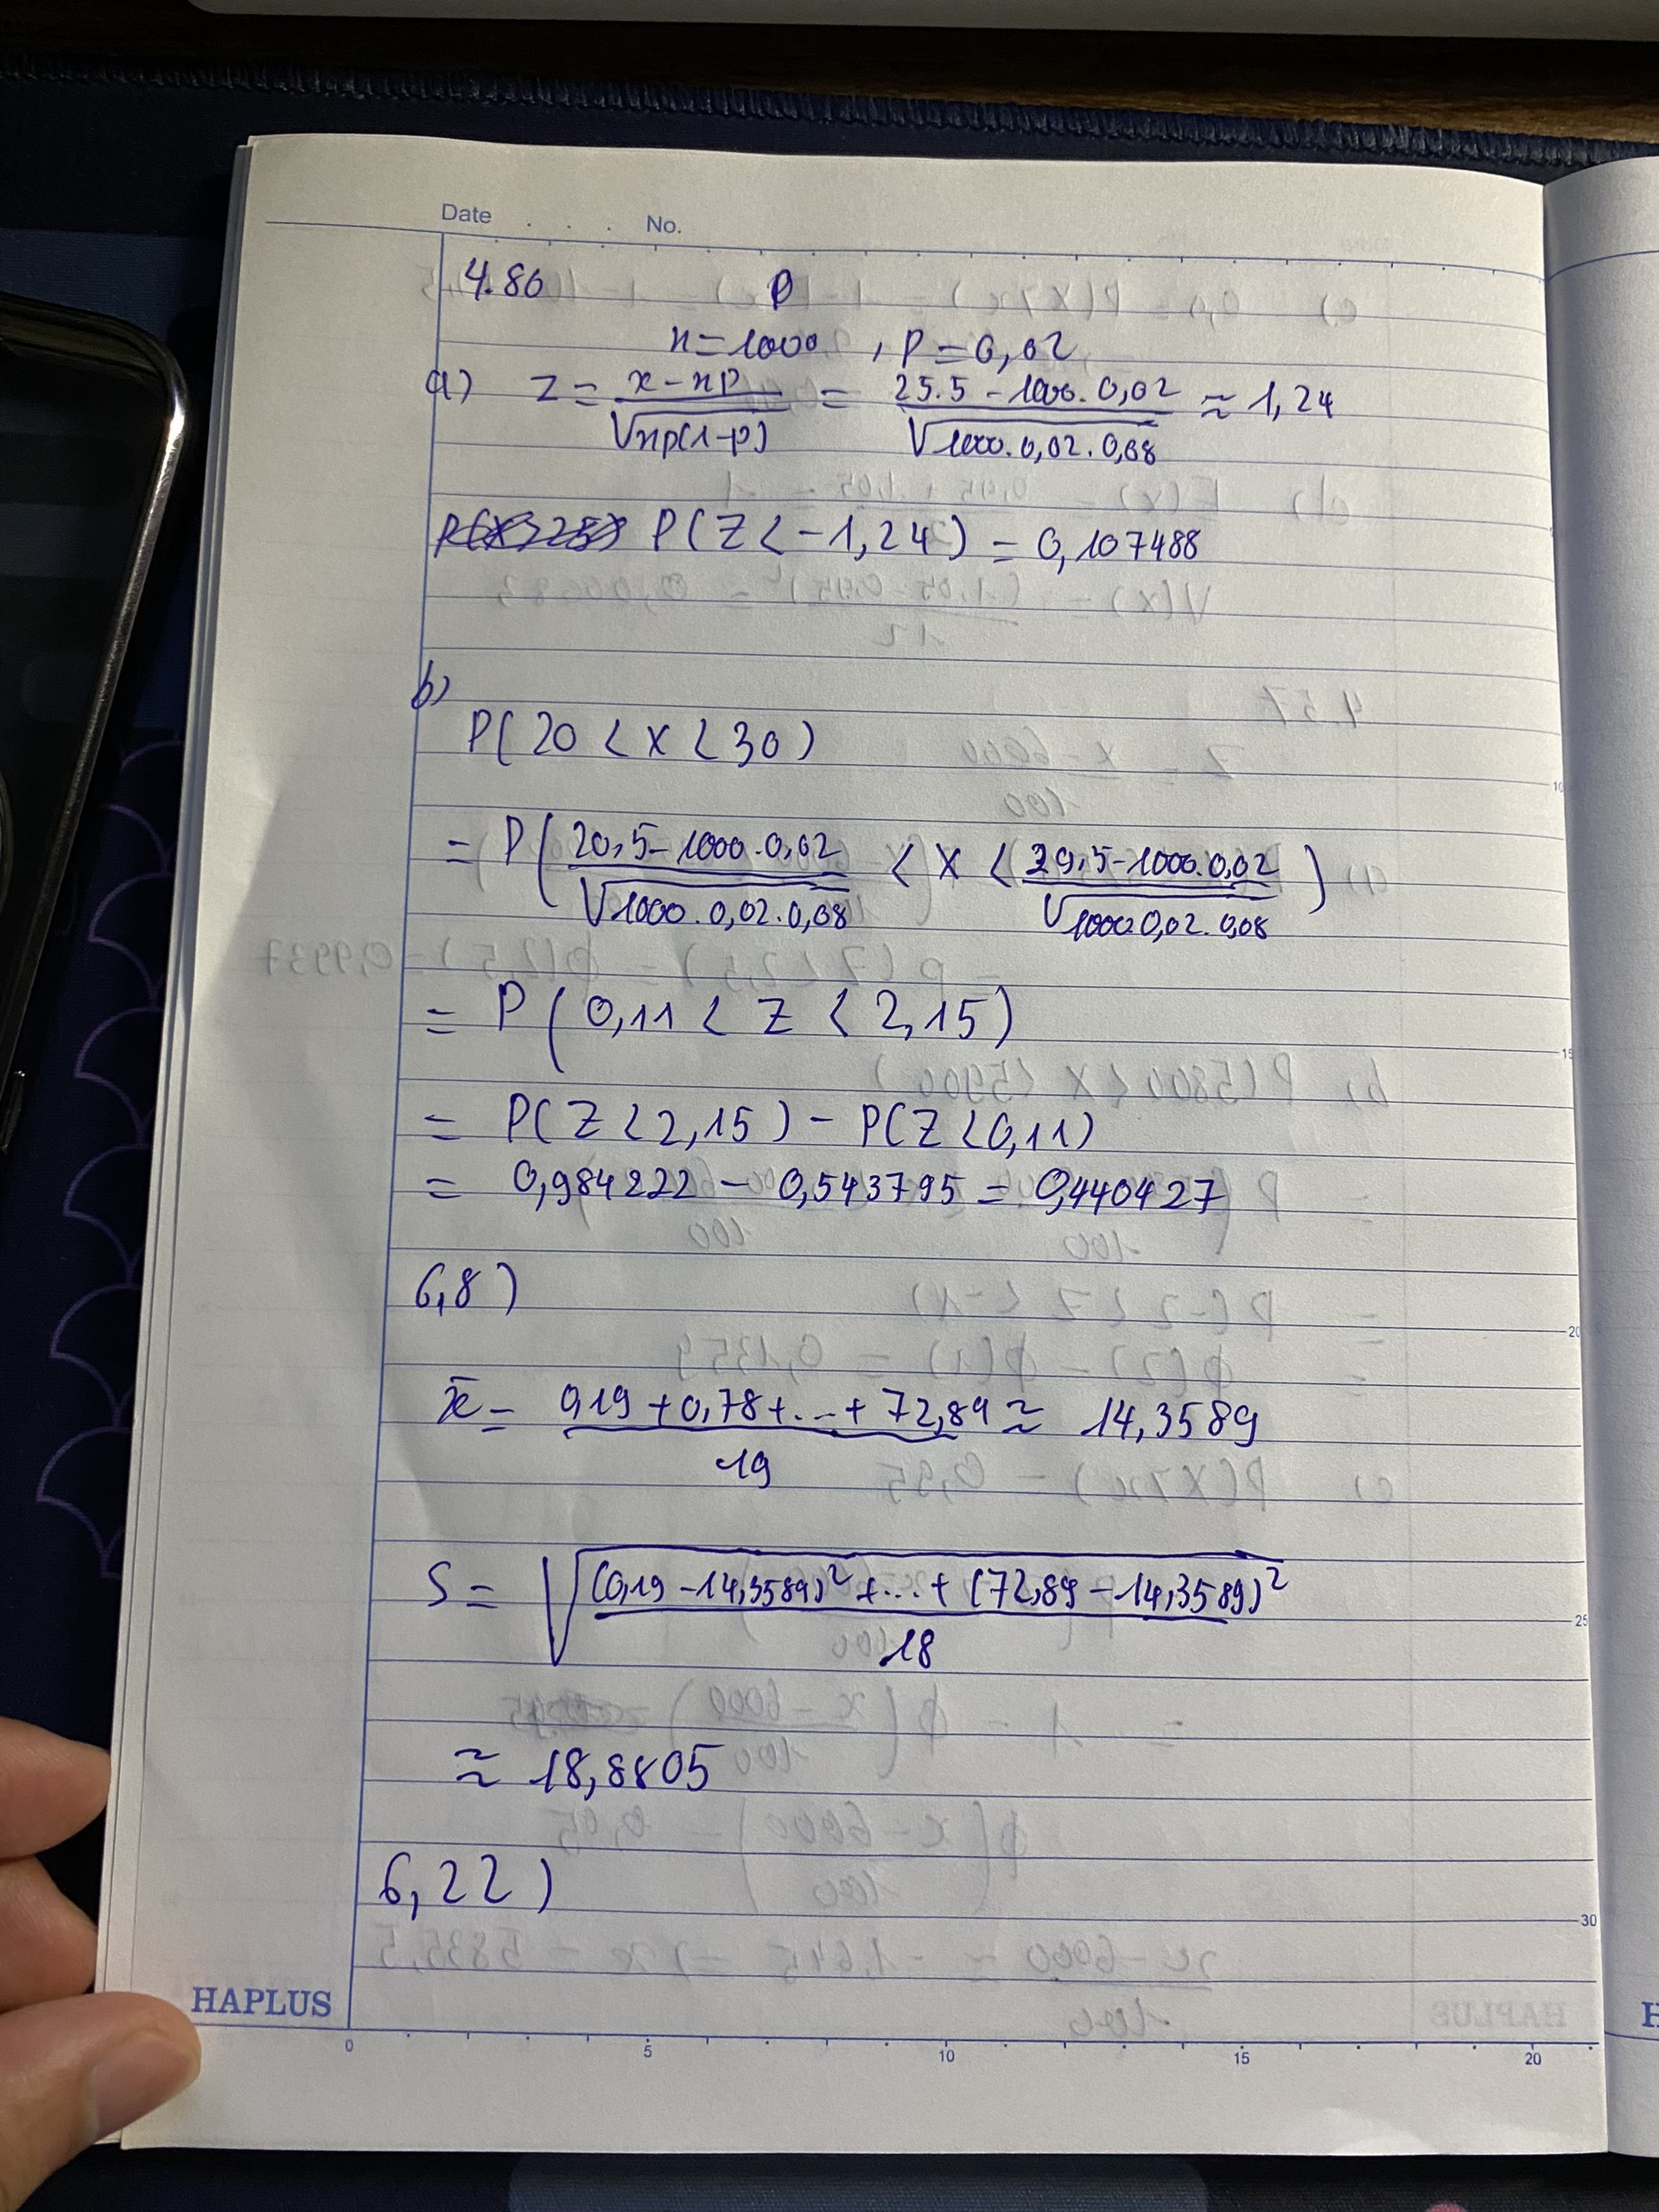 Date No.
4.86 P
n=1000 , P=0,02
a) Z = (x-np)/√(np(1-p)) = (25.5 - 1000.0,02)/√(1000.0,02.0,08) ≈ 1,24
P(Z<-1,24) = 0,107488
b)
P(20 < X < 30)
= P((20,5-1000.0,02)/√(1000.0,02.0,08) < X < (29,5-1000.0,02)/√(1000.0,02.0,08))
= P(0,11 < Z < 2,15)
= P(Z<2,15) - P(Z<0,11)
= 0,984222 - 0,543795 = 0,440427
6,8)
x̄ = (0,19 + 0,78 + ... + 72,89)/19 ≈ 14,3589
S = √(((0,19 - 14,3589)² + ... + (72,89 - 14,3589)²)/18)
≈ 18,8805
6,22)
HAPLUS
0 5 10 15 20
10
15
20
25
30